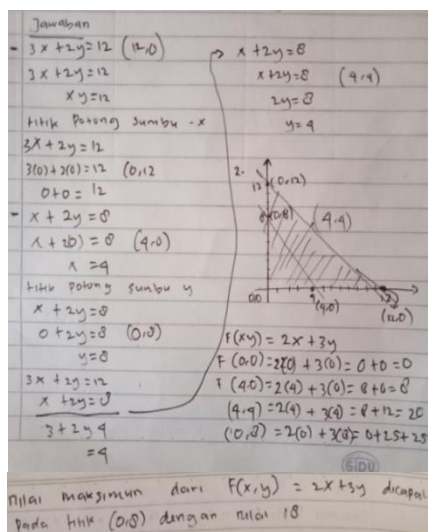 Jawaban
- 3x + 2y = 12 (12,0)
3x + 2y = 12
xy = 12
titik potong sumbu -x
3x + 2y = 12
3(0) + 2(0) = 12 (0,12
0+0 = 12
- x + 2y = 8
x + 2(0) = 8 (4,0)
x = 4
titik potong sumbu y
x + 2y = 8
0 + 2y = 8 (0,8)
y = 8
3x + 2y = 12
x + 2y = 8
3 + 2y 4
= 4
x + 2y = 8
x + 2y = 8 (4,4)
2y = 8
y = 4
2.
12 (0,12)
8 (0,8)
(4,4)
0,0
(4,0)
12
(12,0)
F(xy) = 2x + 3y
F (0,0) = 2(0) + 3(0) = 0 + 0 = 0
F (4,0) = 2(4) + 3(0) = 8 + 0 = 8
(4,4) = 2(4) + 3(4) = 8 + 12 = 20
(0,8) = 2(0) + 3(8) = 0 + 25 = 25
SIDU
nilai maksimun dari F(x,y) = 2x + 3y dicapai
pada titik (0,8) dengan nilai 18